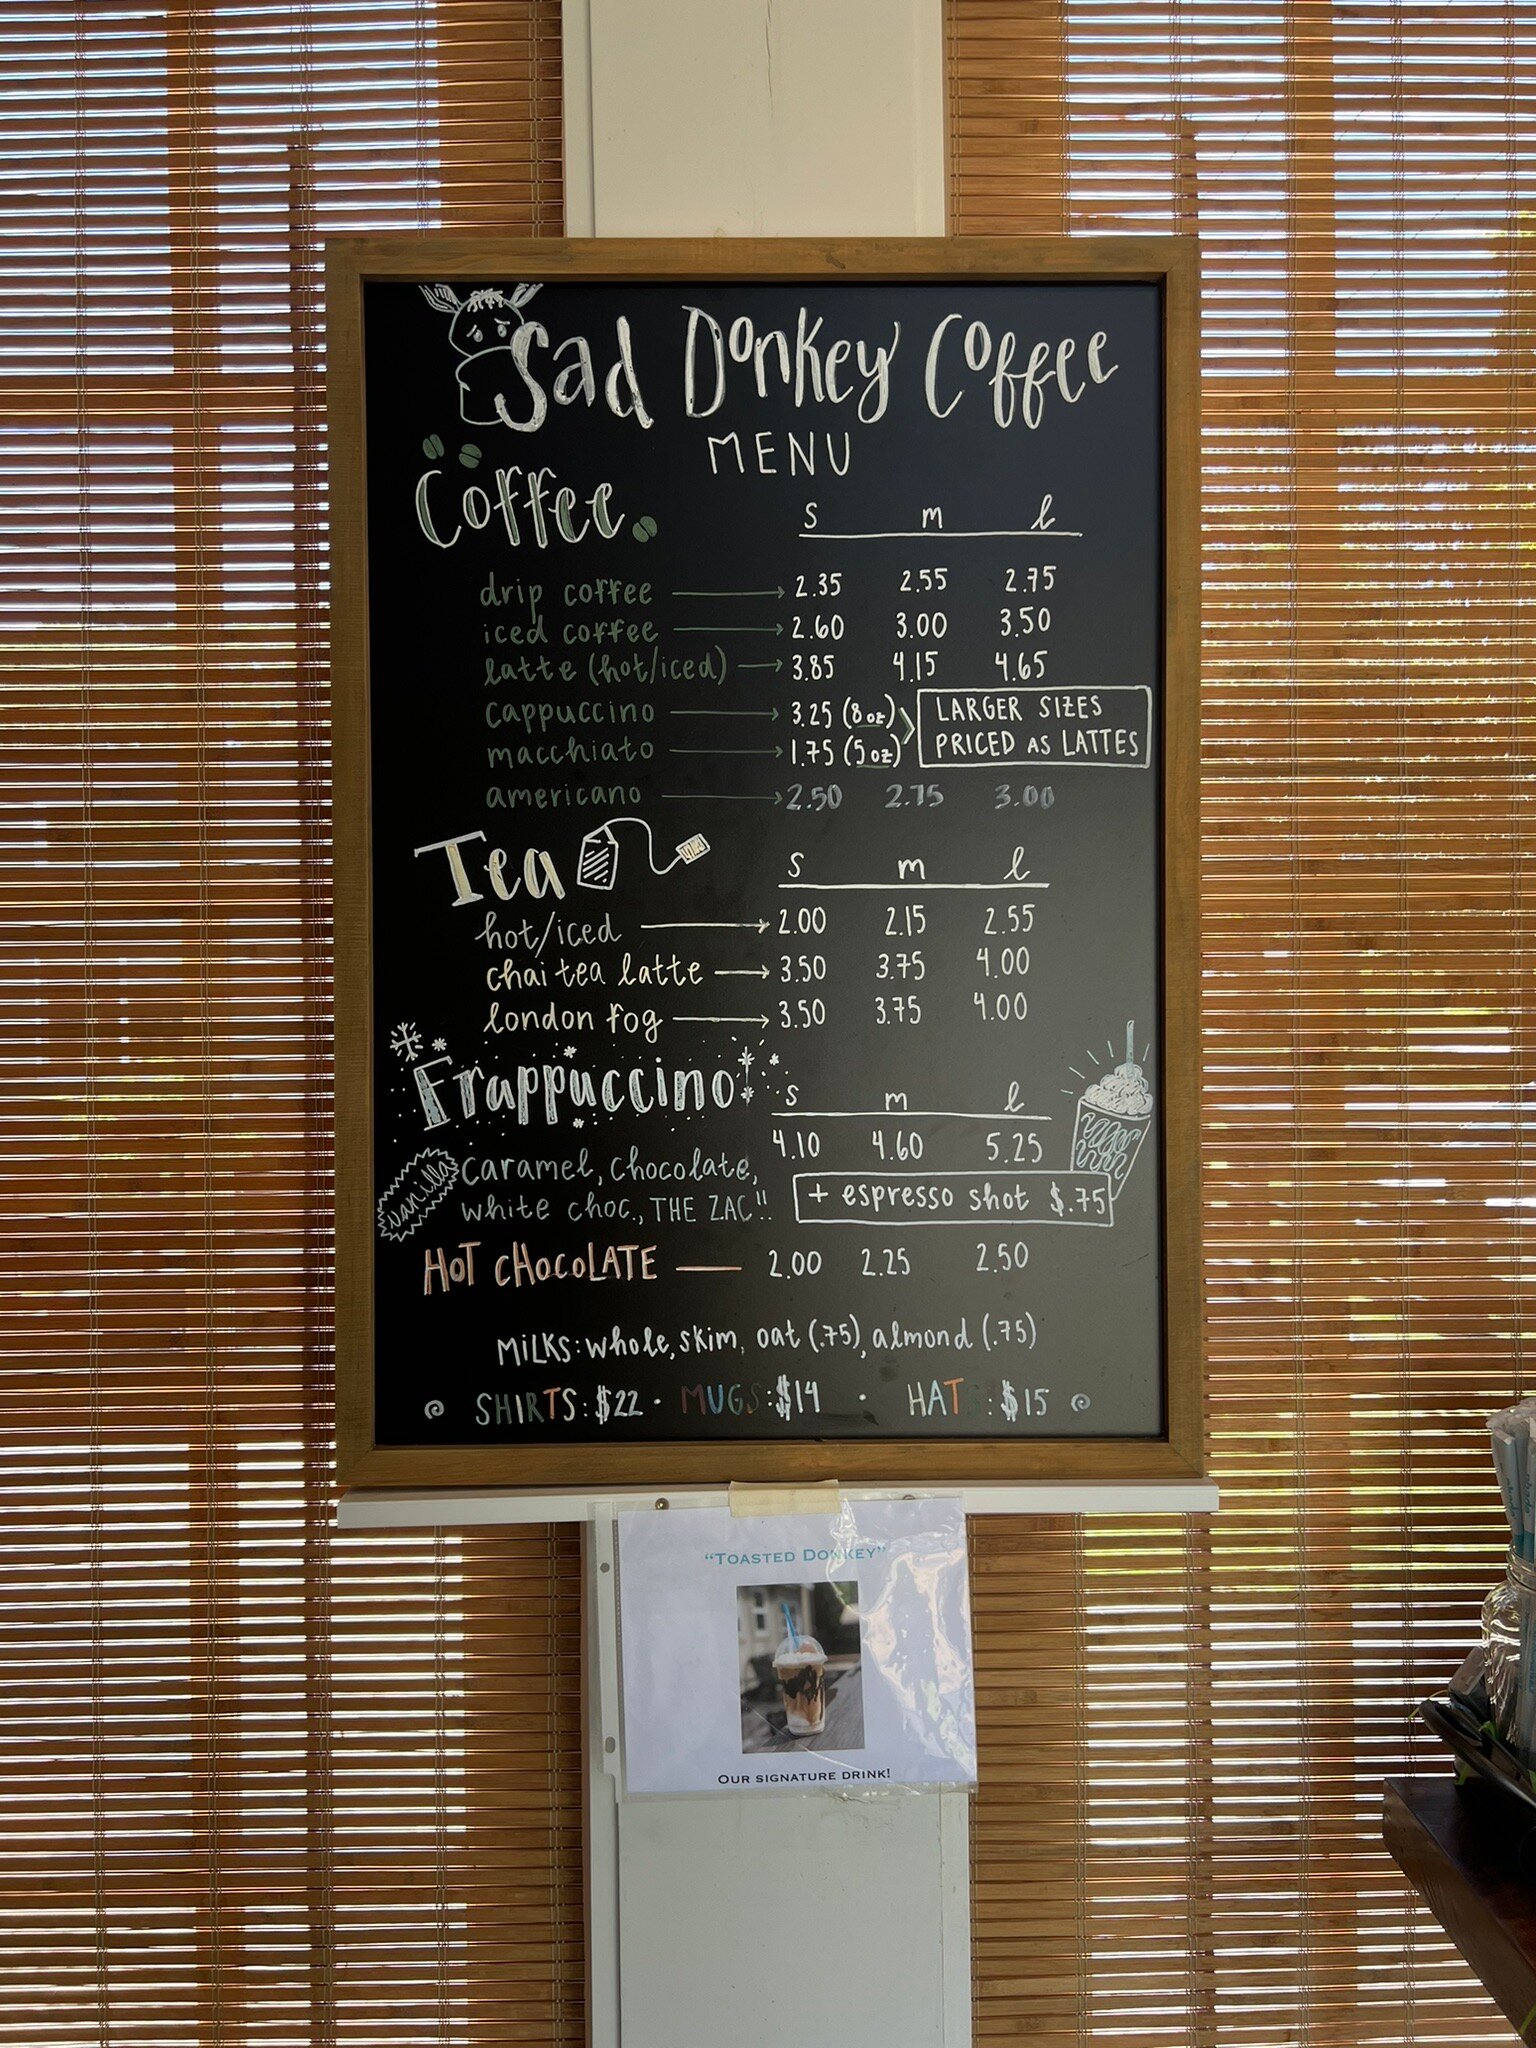 Sad Donkey Coffee
MENU
Coffee
s m l
drip coffee 2.35 2.55 2.75
iced coffee 2.60 3.00 3.50
latte (hot/iced) 3.85 4.15 4.65
cappuccino 3.25 (8oz)
macchiato 1.75 (5oz)
LARGER SIZES
PRICED AS LATTES
americano 2.50 2.75 3.00
Tea
s m l
hot/iced 2.00 2.15 2.55
chai tea latte 3.50 3.75 4.00
london fog 3.50 3.75 4.00
Frappuccino
s m l
4.10 4.60 5.25
vanilla
caramel, chocolate,
white choc., THE ZAC!!
+ espresso shot $.75
HOT CHOCOLATE 2.00 2.25 2.50
MILKS: whole, skim, oat (.75), almond (.75)
SHIRTS: $22 · MUGS: $14 · HATS: $15
"TOASTED DONKEY"
OUR SIGNATURE DRINK!